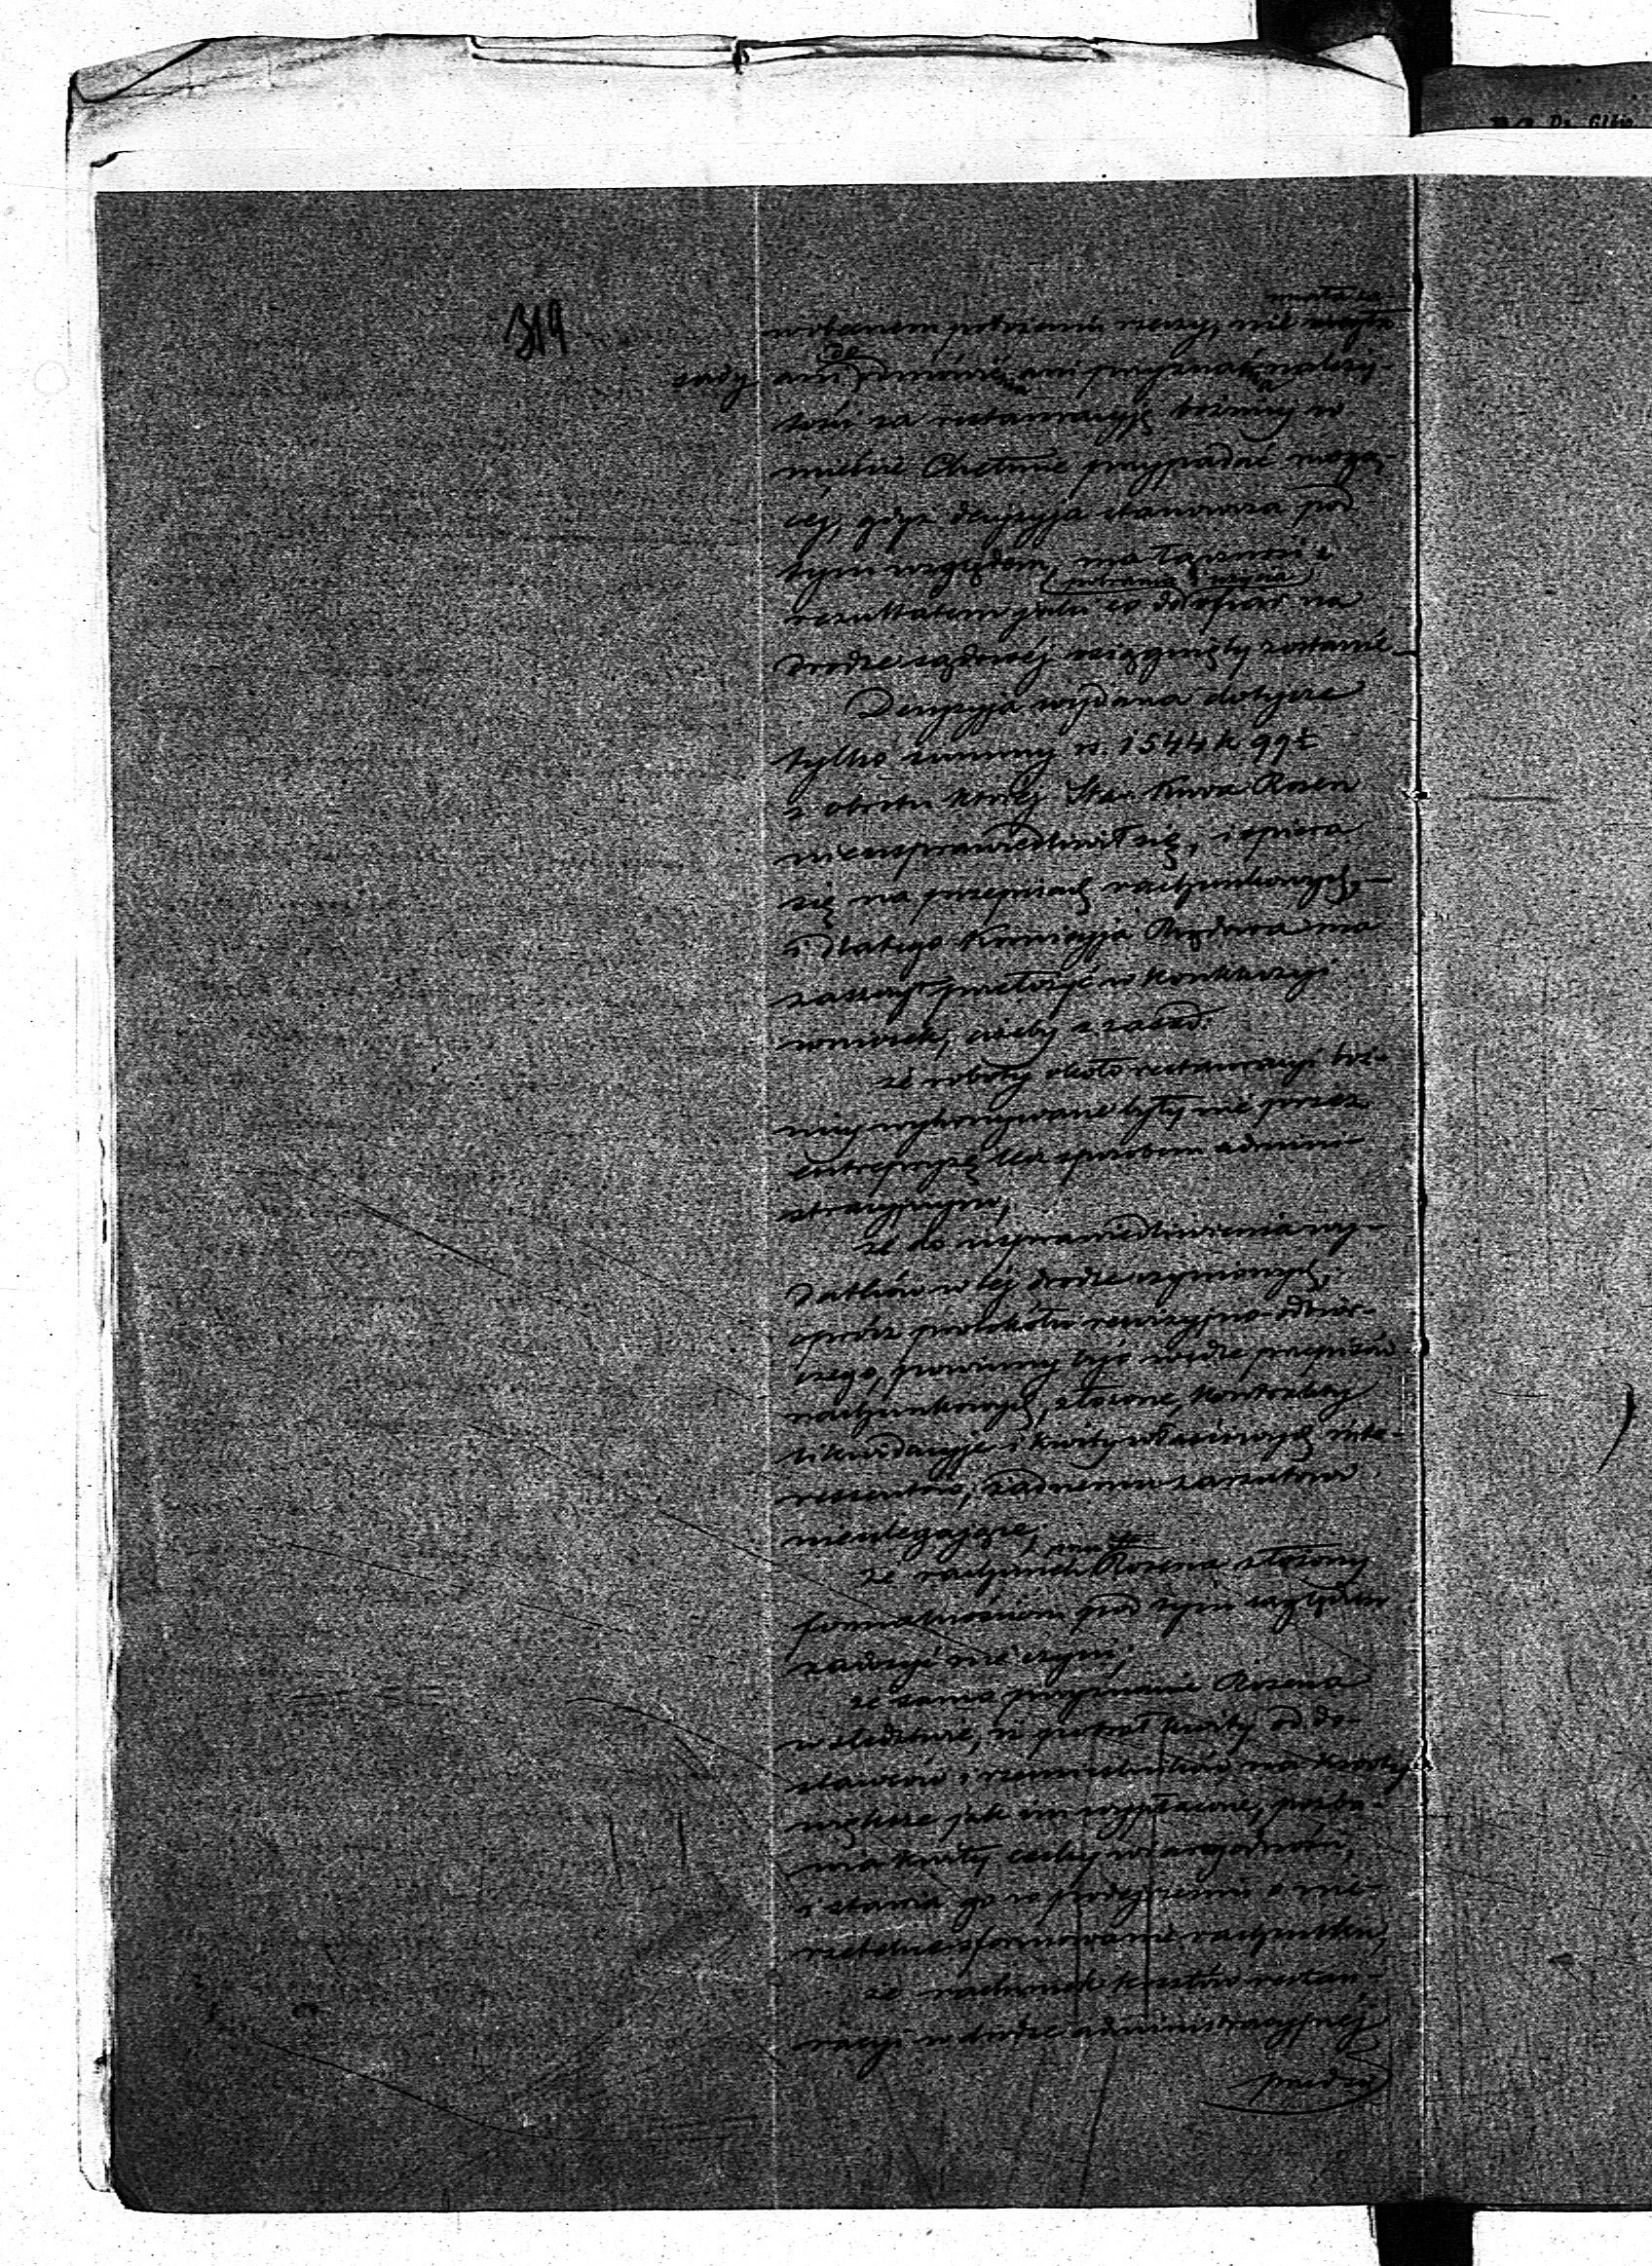 319
miała za
w obecnem położeniu rzeczy, nie mogła
sady ani odmówić ani przyznać należy-
tości za restauracyję bożnicy w
mieście Chełmie przypadać mogą-
cej, gdyż decyzyja stanowcza pod
tym względem, ma łączność z
pobrania i użycia
rezultatem jaki co do ofiar na
drodze sądowej osiągnięty zostanie.
Decyzyja wydana dotycze
tylko summy rs. 1544 k 99½
z obrotu której Star. Kuna Rosen
nieusprawiedliwił się, i opiera
się na przepisach rachunkowych,
i dlatego Kommissyja Rządowa ma
zaszczyt przełożyć w konkluzyi
wniosek, ażeby z zasad:
że roboty około restauracyi boż-
nicy wykonywane były nie przez
entrepryzę lecz sposobem admini-
stracyjnym,
że do usprawiedliwienia wy-
datków w tej drodze czynionych,
oprócz protokółu rewizyjno-odbior-
czego, powinny być wedle przepisów
rachunkowych, złożone, kontrakty
likwidacyje i kwity właściwych inte-
ressentów, żadnemu zarzutowi
nieulegające;
że rachunek Rosena złożony
formalnościom pod tym względem
zadosyć nie czyni;
że samo przyznanie Rosena
w śledztwie, iż pobrał kwity od do-
stawców i rzemieślników na kwoty
większe jak im wypłacone, pozba-
wia kwity cechy wiarogodności,
i stawia go w podejrzeniu o nie-
rzetelne sformowanie rachunku,
że rachunek kosztów restau-
racyi w drodze administracyjnej